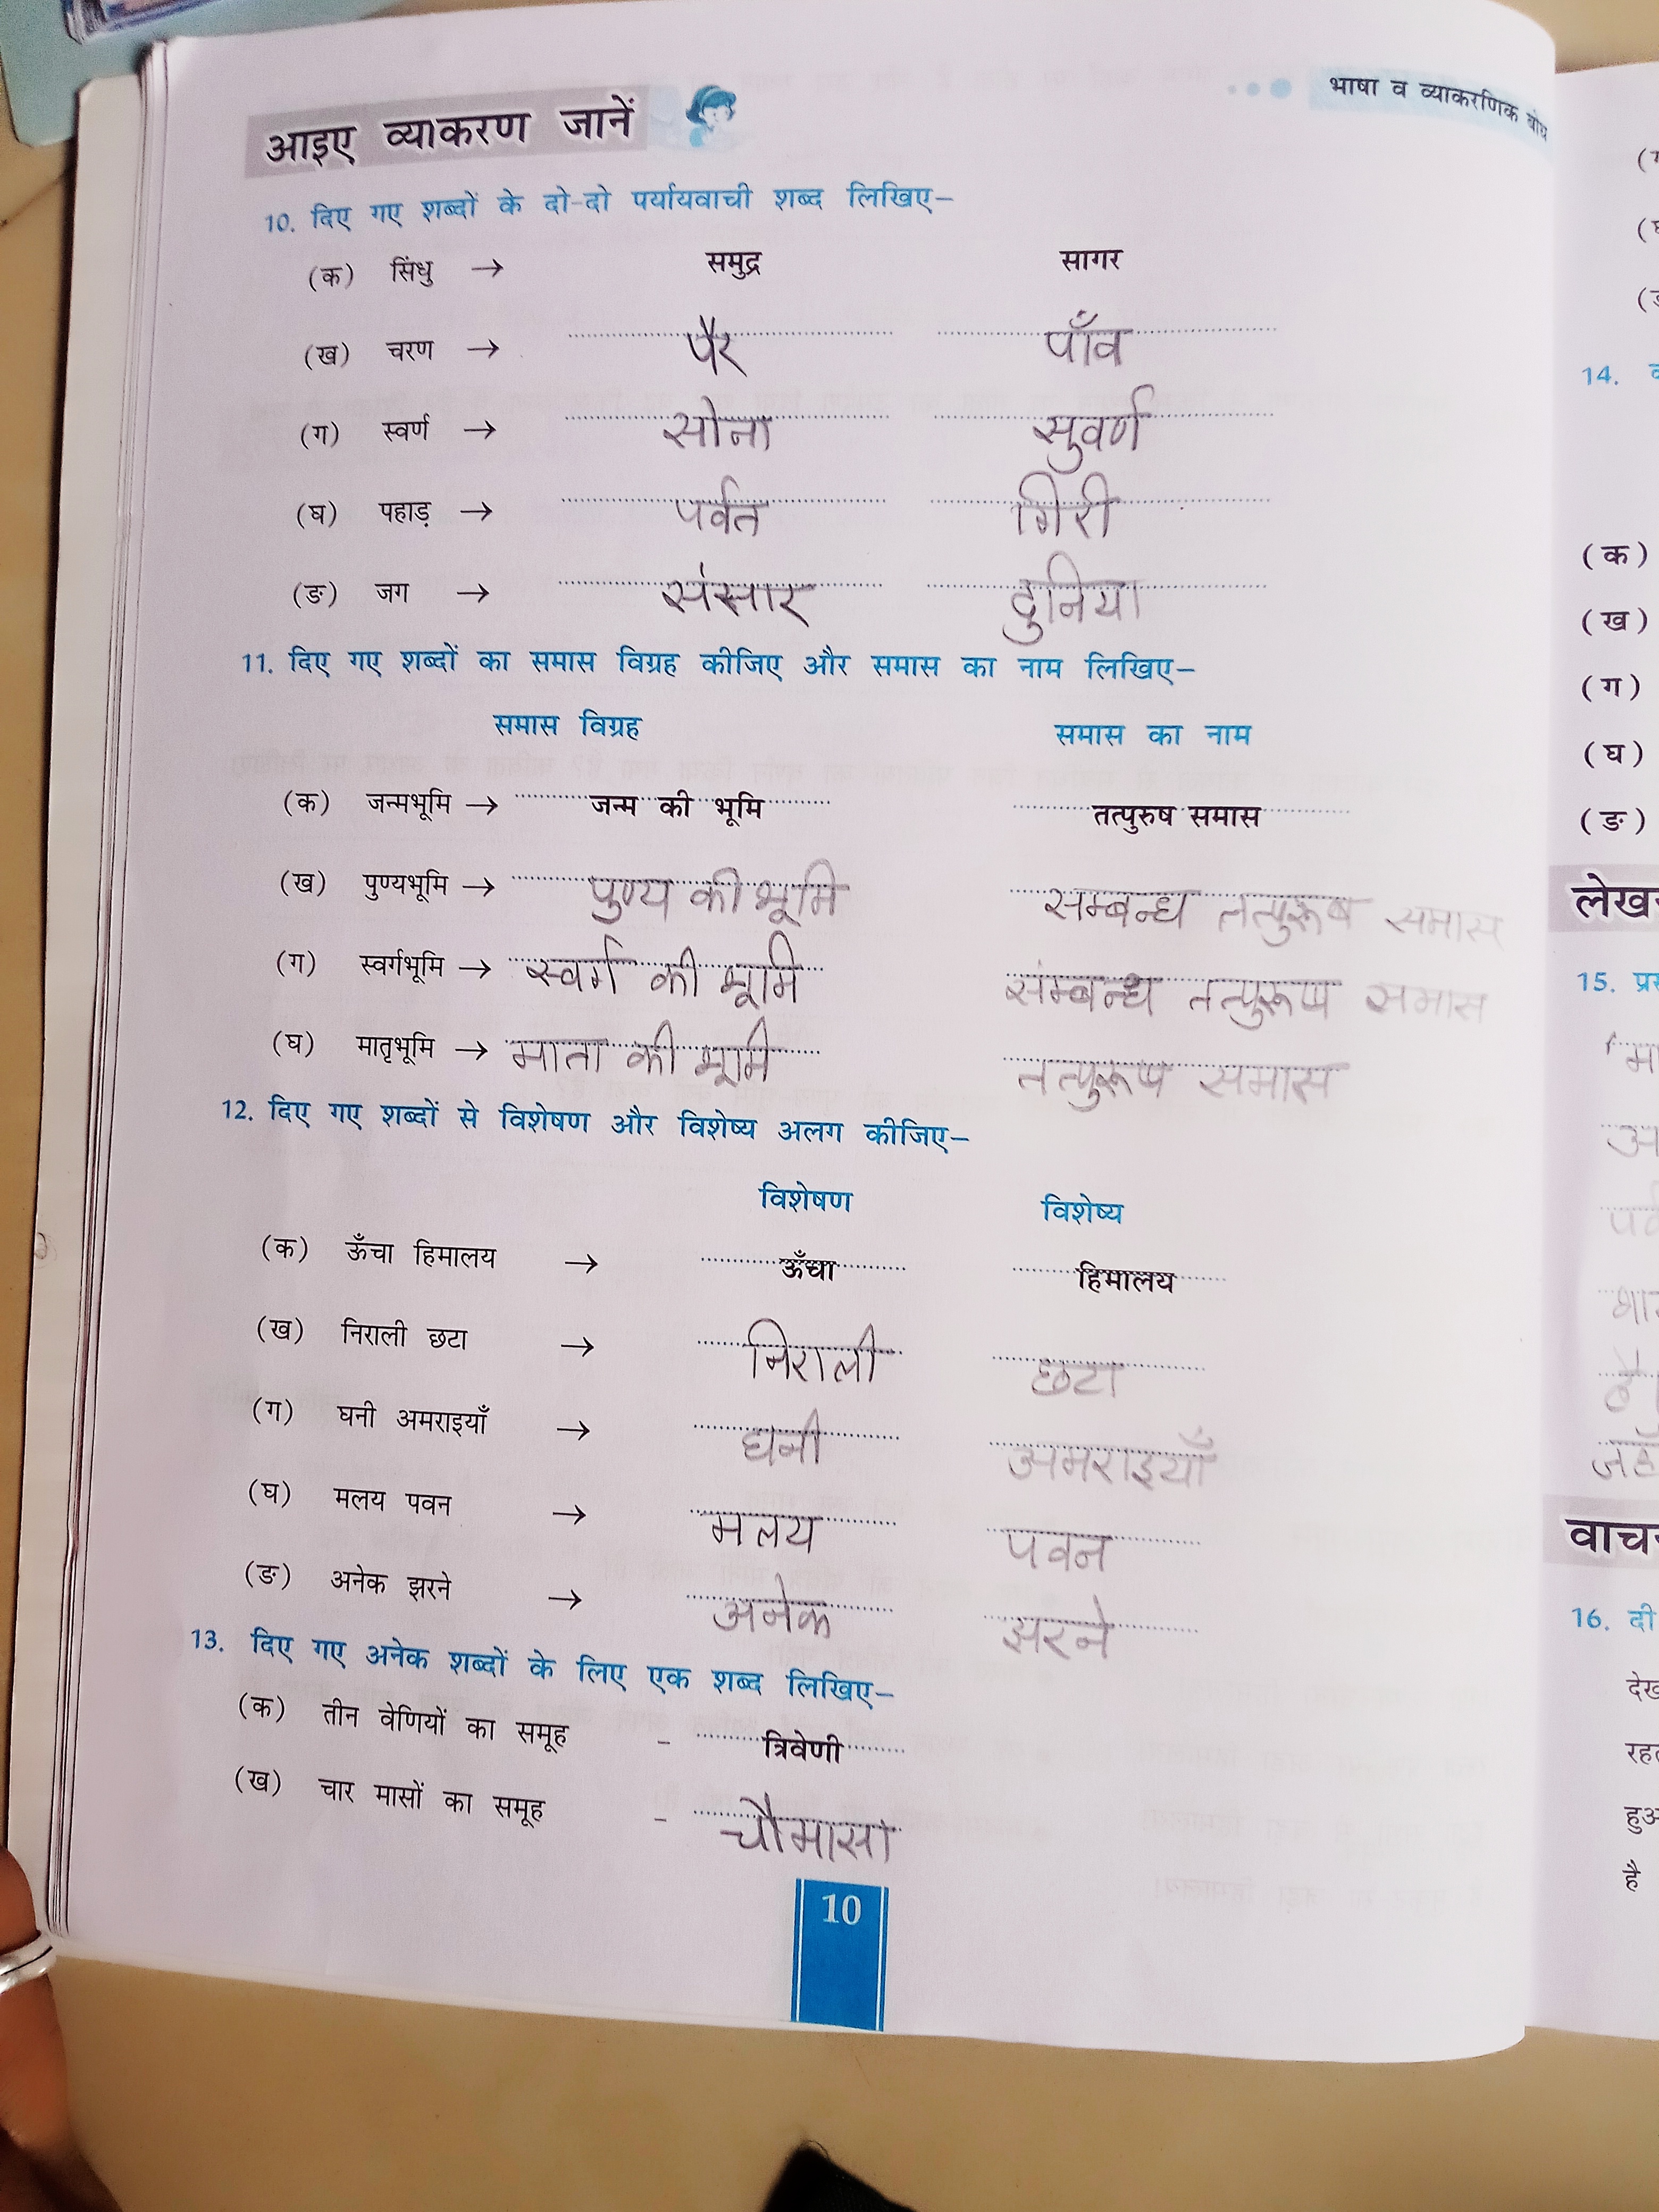 भाषा व व्याकरणिक बोध
आइए व्याकरण जानें
10. दिए गए शब्दों के दो-दो पर्यायवाची शब्द लिखिए–
(क) सिंधु → समुद्र सागर
(ख) चरण → पैर पाँव
(ग) स्वर्ण → सोना सुवर्ण
(घ) पहाड़ → पर्वत गिरी
(ङ) जग → संसार दुनिया
11. दिए गए शब्दों का समास विग्रह कीजिए और समास का नाम लिखिए–
समास विग्रह समास का नाम
(क) जन्मभूमि → जन्म की भूमि तत्पुरुष समास
(ख) पुण्यभूमि → पुण्य की भूमि सम्बन्ध तत्पुरूष समास
(ग) स्वर्गभूमि → स्वर्ग की भूमि संम्बन्ध तत्पुरूष समास
(घ) मातृभूमि → माता की भूमि तत्पुरूष समास
12. दिए गए शब्दों से विशेषण और विशेष्य अलग कीजिए–
विशेषण विशेष्य
(क) ऊँचा हिमालय → ऊँचा हिमालय
(ख) निराली छटा → निराली छटा
(ग) घनी अमराइयाँ → घनी अमराइयाँ
(घ) मलय पवन → मलय पवन
(ङ) अनेक झरने → अनेक झरने
13. दिए गए अनेक शब्दों के लिए एक शब्द लिखिए–
(क) तीन वेणियों का समूह – त्रिवेणी
(ख) चार मासों का समूह – चौमासा
10
14.
(क)
(ख)
(ग)
(घ)
(ङ)
15.
16. दी
है